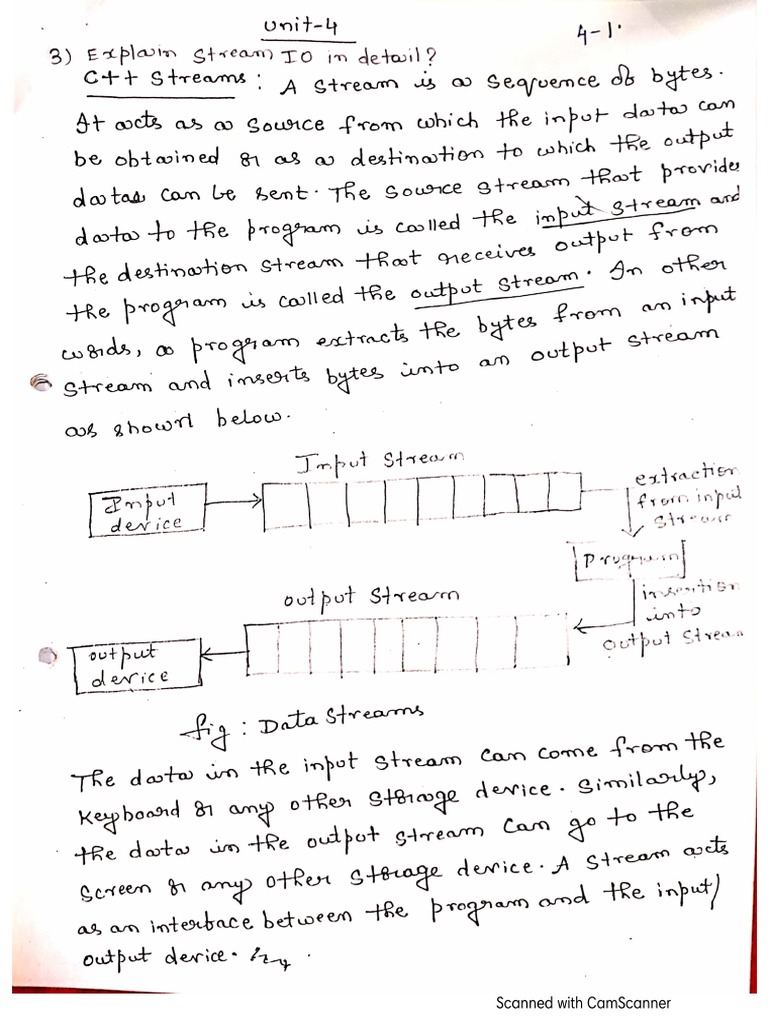 Unit-4
4-1.
3) Explain Stream IO in detail?
C++ Streams: A Stream is a sequence of bytes.
It acts as a source from which the input data can
be obtained or as a destination to which the output
datas can be sent. The source stream that provides
data to the program is called the input stream and
the destination stream that receives output from
the program is called the output stream. In other
words, a program extracts the bytes from an input
stream and inserts bytes into an output stream
as shown below.
Input Stream
Input
device
extraction
from input
stream
Program
Output Stream
insertion
into
output stream
output
device
fig: Data Streams
The data in the input stream can come from the
keyboard or any other storage device. Similarly,
the data in the output stream can go to the
screen or any other storage device. A stream acts
as an interface between the program and the input/
output device.
Scanned with CamScanner